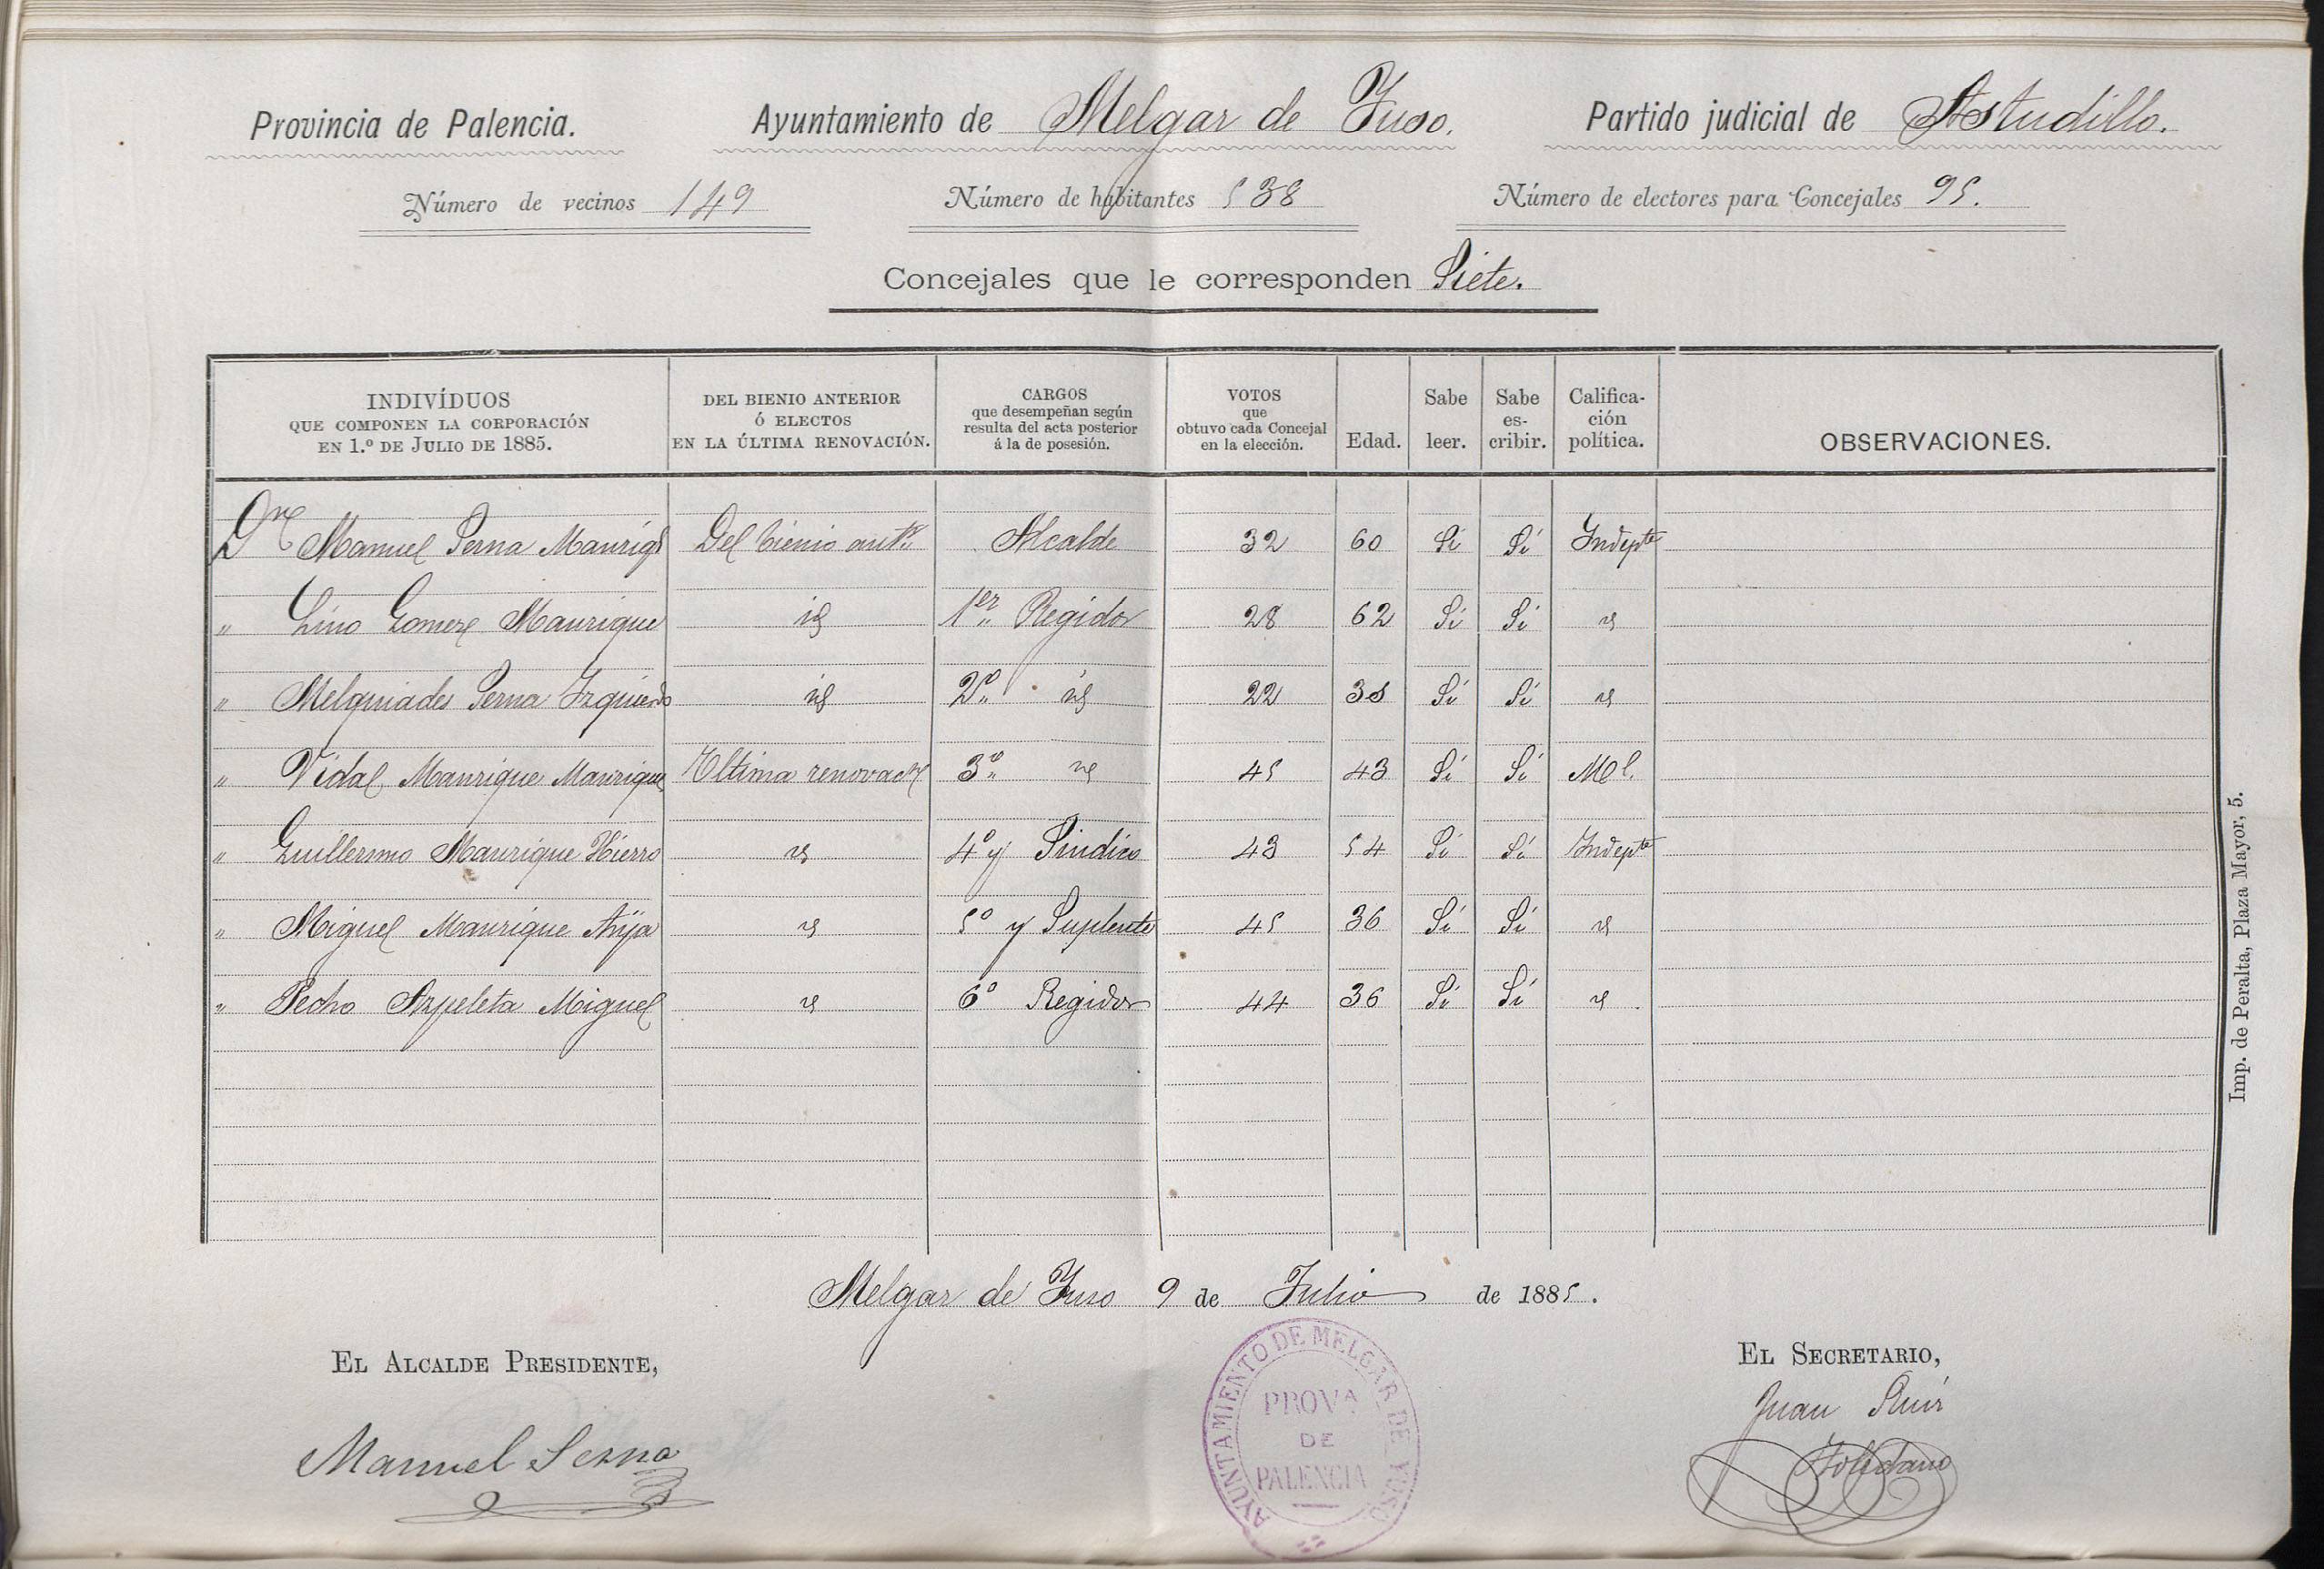 Provincia de Palencia. Ayuntamiento de Melgar de Yuso. Partido judicial de Astudillo.
Número de vecinos 149 Número de habitantes 538 Número de electores para Concejales 95.
Concejales que le corresponden Siete.
INDIVÍDUOS QUE COMPONEN LA CORPORACIÓN EN 1.º DE JULIO DE 1885. DEL BIENIO ANTERIOR Ó ELECTOS EN LA ÚLTIMA RENOVACIÓN. CARGOS que desempeñan según resulta del acta posterior á la de posesión. VOTOS que obtuvo cada Concejal en la elección. Edad. Sabe leer. Sabe es-cribir. Califica-ción política. OBSERVACIONES.
Dn Manuel Serna Manriq Del bienio antr Alcalde 32 60 Si Sí Indepte
" Lino Gomez Manrique id 1er Regidor 28 62 Sí Sí id
" Melquiades Serna Izquierdo id 2º id 22 38 Sí Sí id
" Vidal Manrique Manrique Ultima renovacn 3º id 45 43 Sí Sí
" Guillermo Manrique Hierro id 4º y Sindico 43 54 Sí Sí Indepte
" Miguel Manrique Aïja id 5º y Suplente 45 36 Sí Sí id
" Pedro Azpeleta Miguel id 6º Regidor 44 36 Sí Sí id
Melgar de Yuso 9 de Julio de 1885.
EL ALCALDE PRESIDENTE, EL SECRETARIO,
Manuel Serna
Juan Ruiz
Toledano
AYUNTAMIENTO DE MELGAR DE YUSO
PROVA
DE
PALENCIA
Imp. de Peralta, Plaza Mayor, 5.